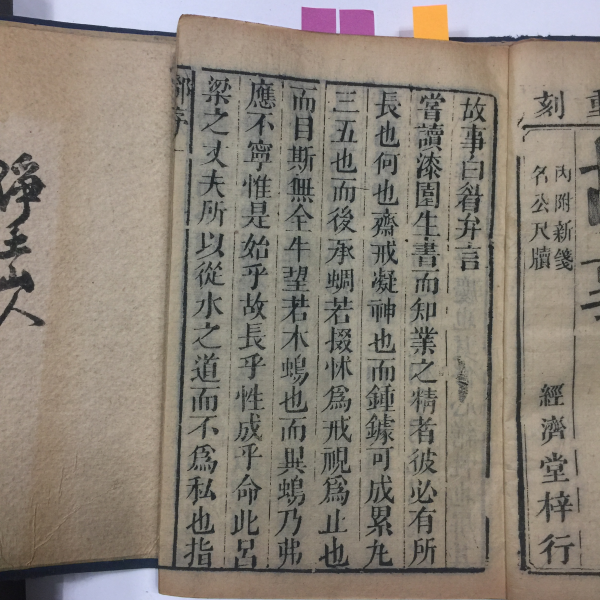 刻
內附新箋
名公尺牘
經濟堂梓行
故事白眉弁言
嘗讀漆園生書而知業之精者彼必有所
長也何也齋戒凝神也而鍾鐻可成累丸
三五也而後承蜩若掇怵爲戒視爲止也
而目斯無全牛望若木鳮也而異鳮乃弗
應不寧惟是始乎故長乎性成乎命此呂
梁之丈夫所以從水之道而不爲私也指
主山人